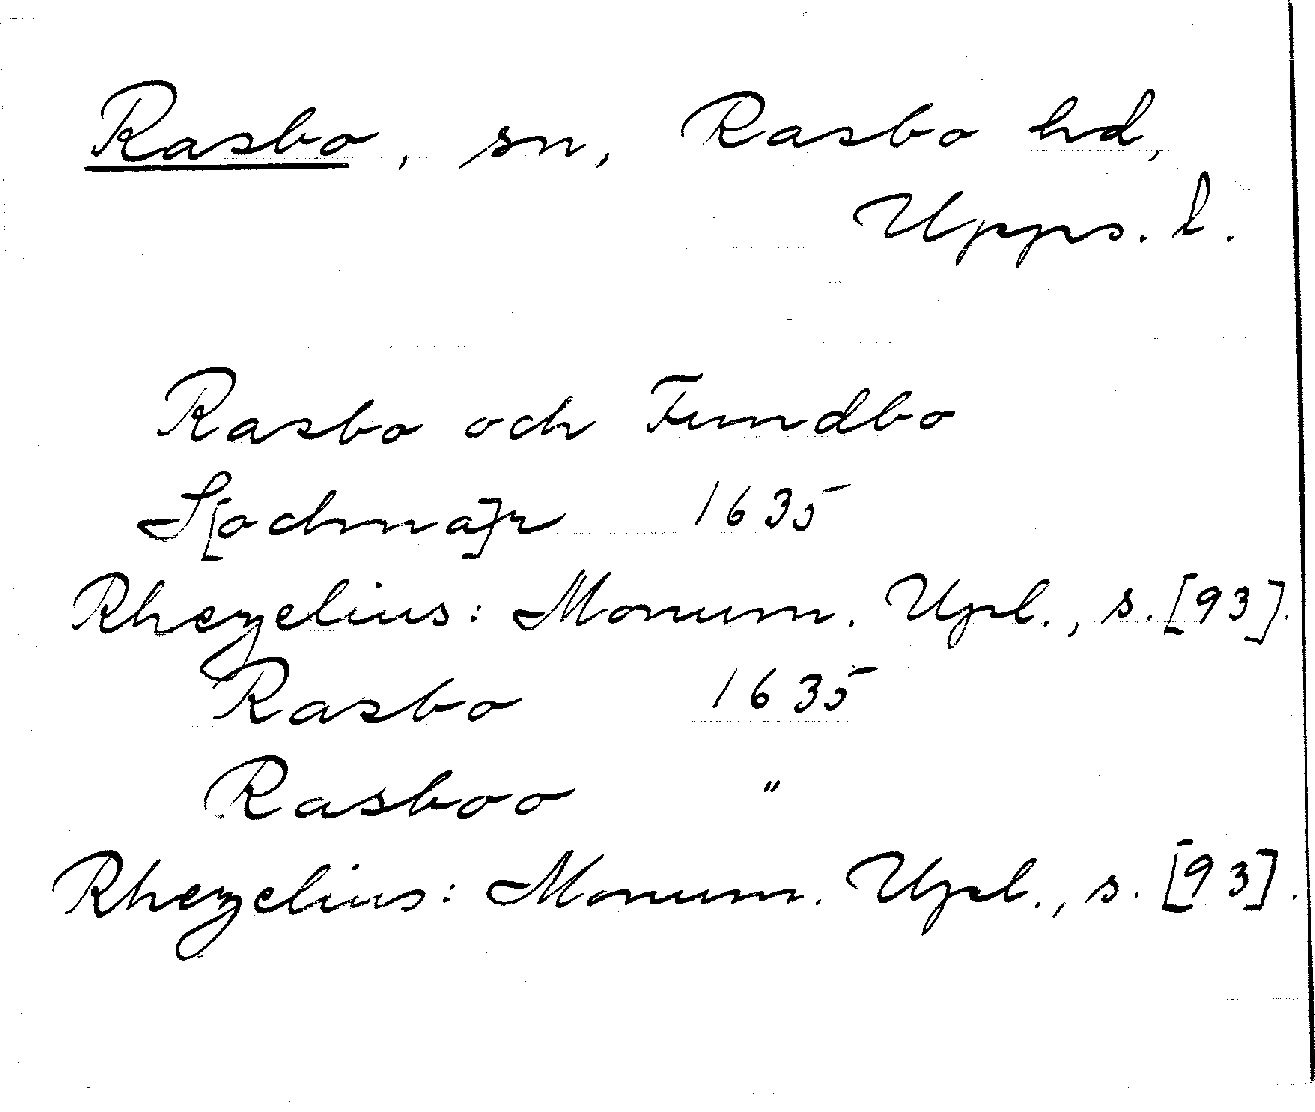 Rasbo, sn, Rasbo hd,
Upps. l.
Rasbo och Fundbo
S[ochna]r 1635
Rhezelius: Monum. Upl., s. [93].
Rasbo 1635
Rasboo "
Rhezelius: Monum. Upl., s. [93].